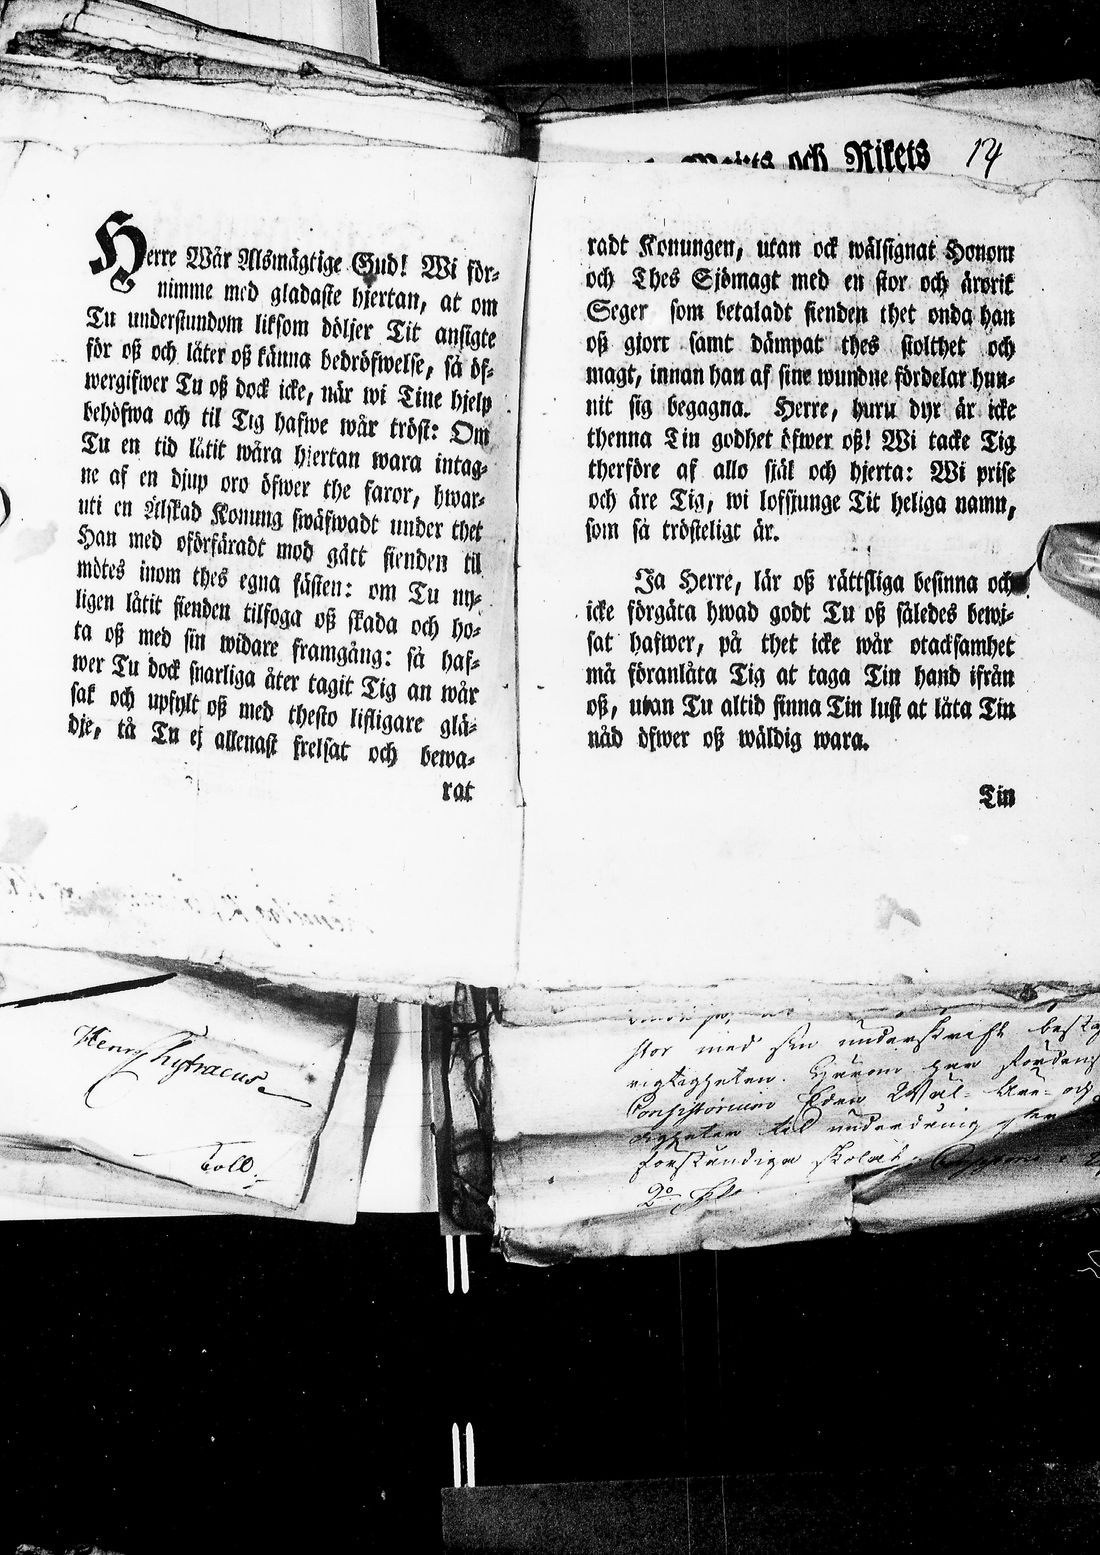 Herre Wår Alsmägtige Gud! Wi för-
nimme med gladaste hjertan, at om
Tu understundom liksom döljer Tit ansigte
för oß och låter oß känna bedröfwelse, så öf-
wergifwer Tu oß dock icke, när wi Tine hjelp
behöfwa och til Tig hafwe wår tröst: Om
Tu en tid låtit wåra hjertan wara intag-
ne af en djup oro öfwer the faror, hwar-
uti en Älskad Konung swäfwadt under thet
Han med oförfäradt mod gått fienden til
mötes inom thes egna fästen: om Tu ny-
ligen låtit fienden tilfoga oß skada och ho-
ta oß med sin widare framgång: så haf-
wer Tu dock snarliga åter tagit Tig an wår
sak och upfylt oß med thesto lifligare glä-
dje, tå Tu ej allenast frelsat och bewa-
rat
och Rikets 14
radt Konungen, utan ock wälsignat Honom
och Thes Sjömagt med en stor och ärorik
Seger som betaladt fienden thet onda han
oß gjort samt dämpat thes stolthet och
magt, innan han af sine wundne fördelar hun-
nit sig begagna. Herre, huru dyr är icke
thenna Tin godhet öfwer oß! Wi tacke Tig
therföre af allo själ och hjerta: Wi prise
och äre Tig, wi loffsjunge Tit heliga namn,
som så trösteligt är.
Ja Herre, lär oß rättsliga besinna och
icke förgäta hwad godt Tu oß således bewi-
sat hafwer, på thet icke wår otacksamhet
må föranlåta Tig at taga Tin hand ifrån
oß, utan Tu altid finna Tin lust at låta Tin
nåd öfwer oß wäldig wara.
Tin
Henr Kytraeus
Toll
stor med sin underskrift
rigtigheten.
Consistorium Eder Wäl- Äre- och
til underdånig